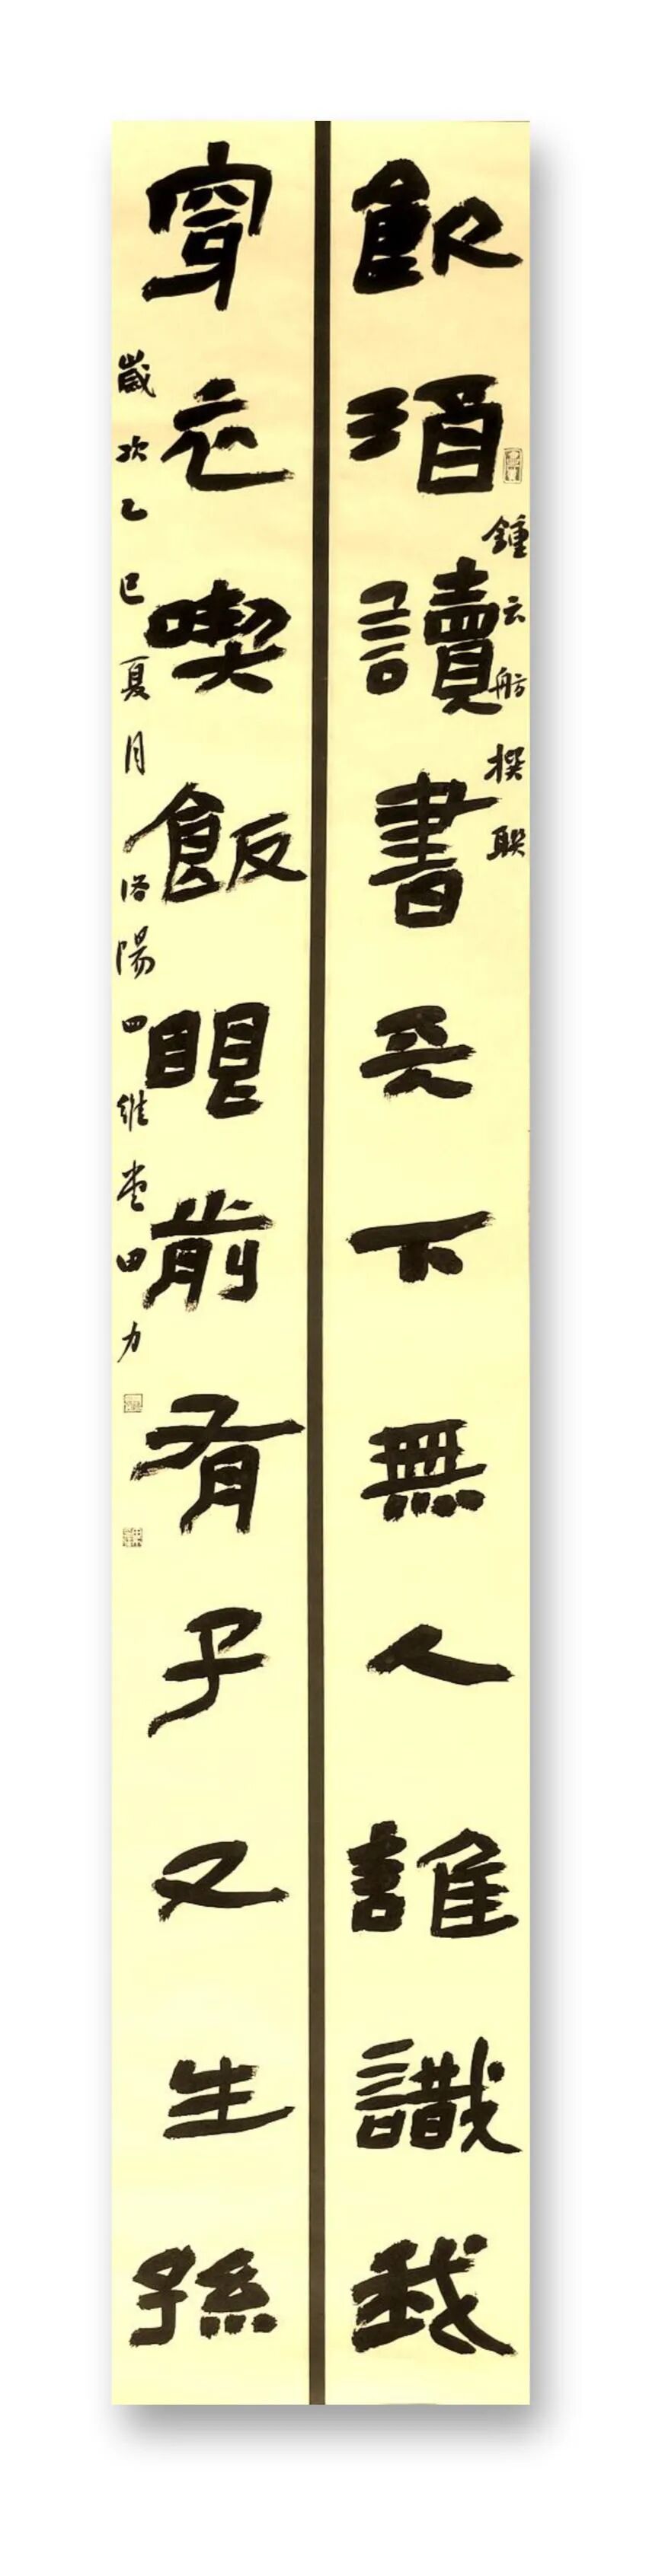 飲酒讀書天下無人誰識我
鍾云舫撰联
穿衣喫飯眼前有子又生孫
歲次乙巳夏月洛陽四維堂田力